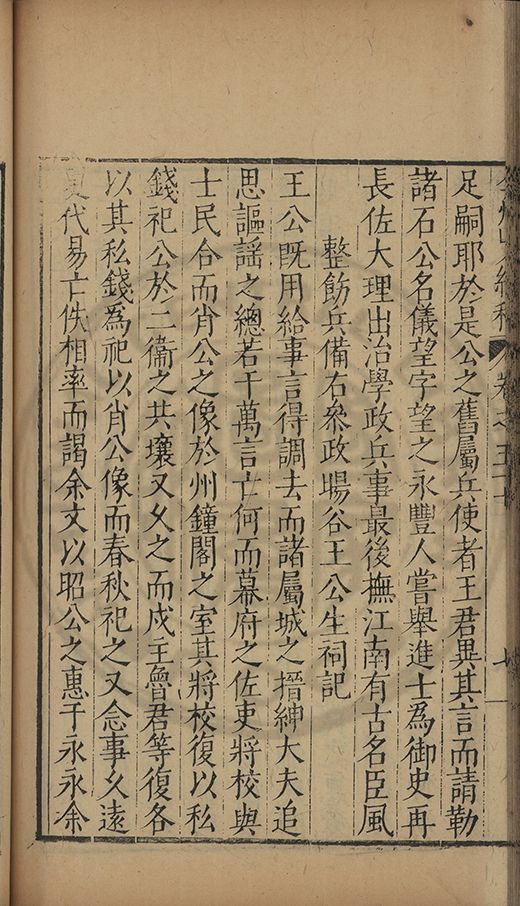 卷之五十 七
足嗣耶於是公之舊屬兵使者王君異其言而請勒
諸石公名儀望字望之永豐人嘗舉進士爲御史再
長佐大理出治學政兵事最後撫江南有古名臣風
整飭兵備右叅政暘谷王公生祠記
王公旣用給事言得調去而諸屬城之搢紳大夫追
思謳謠之總若干萬言亡何而幕府之佐吏將校與
士民合而肖公之像於州鐘閣之室其將校復以私
錢祀公於二衞之共壤又乆之而戍主魯君等復各
以其私錢爲祀以肖公像而春秋祀之又念事乆遠
更代易亡佚相率而謁余文以昭公之惠于永永余